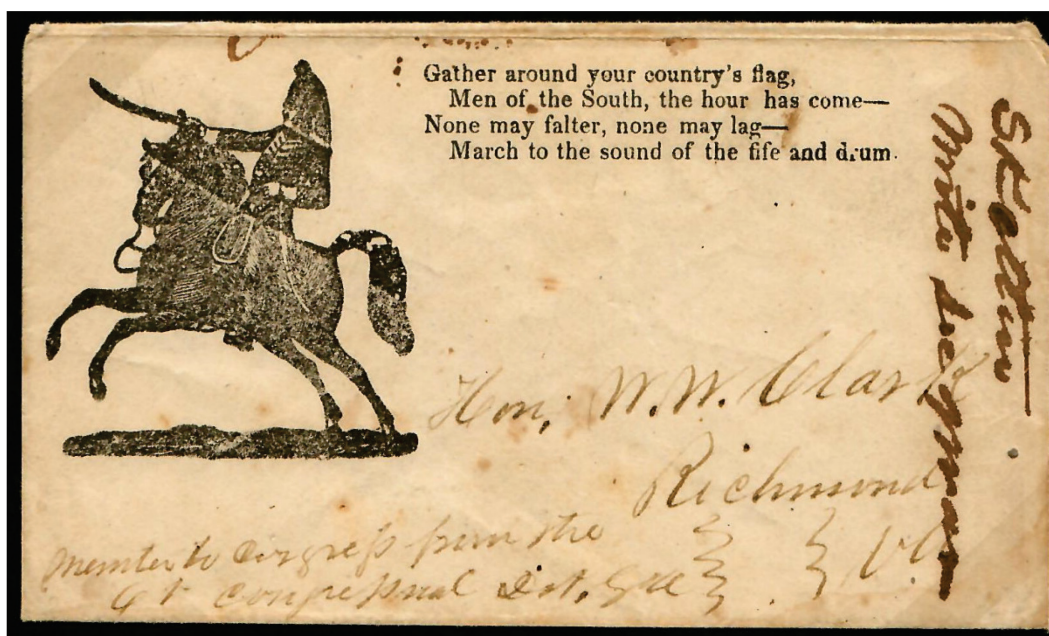 Gather around your country's flag,
Men of the South, the hour has come—
None may falter, none may lag—
March to the sound of the fife and drum.
Hon, W.W. Clark
Richmond
Va
Member to Congress from the
Congressional Dist, Ga